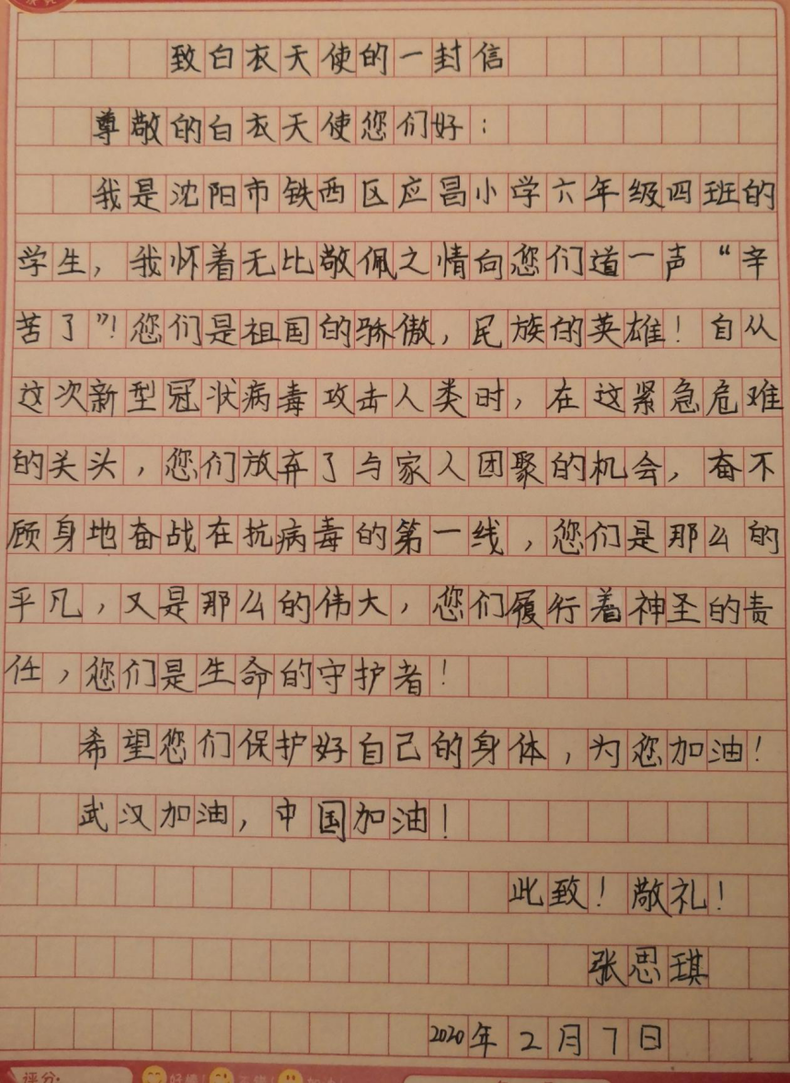 致白衣天使的一封信
尊敬的白衣天使您们好：
我是沈阳市铁西区应昌小学六年级四班的
学生，我怀着无比敬佩之情向您们道一声“辛
苦了”！您们是祖国的骄傲，民族的英雄！自从
这次新型冠状病毒攻击人类时，在这紧急危难
的关头，您们放弃了与家人团聚的机会，奋不
顾身地奋战在抗病毒的第一线，您们是那么的
平凡，又是那么的伟大，您们履行着神圣的责
任，您们是生命的守护者！
希望您们保护好自己的身体，为您加油！
武汉加油，中国加油！
此致！敬礼！
张思琪
2020年2月7日
评分：